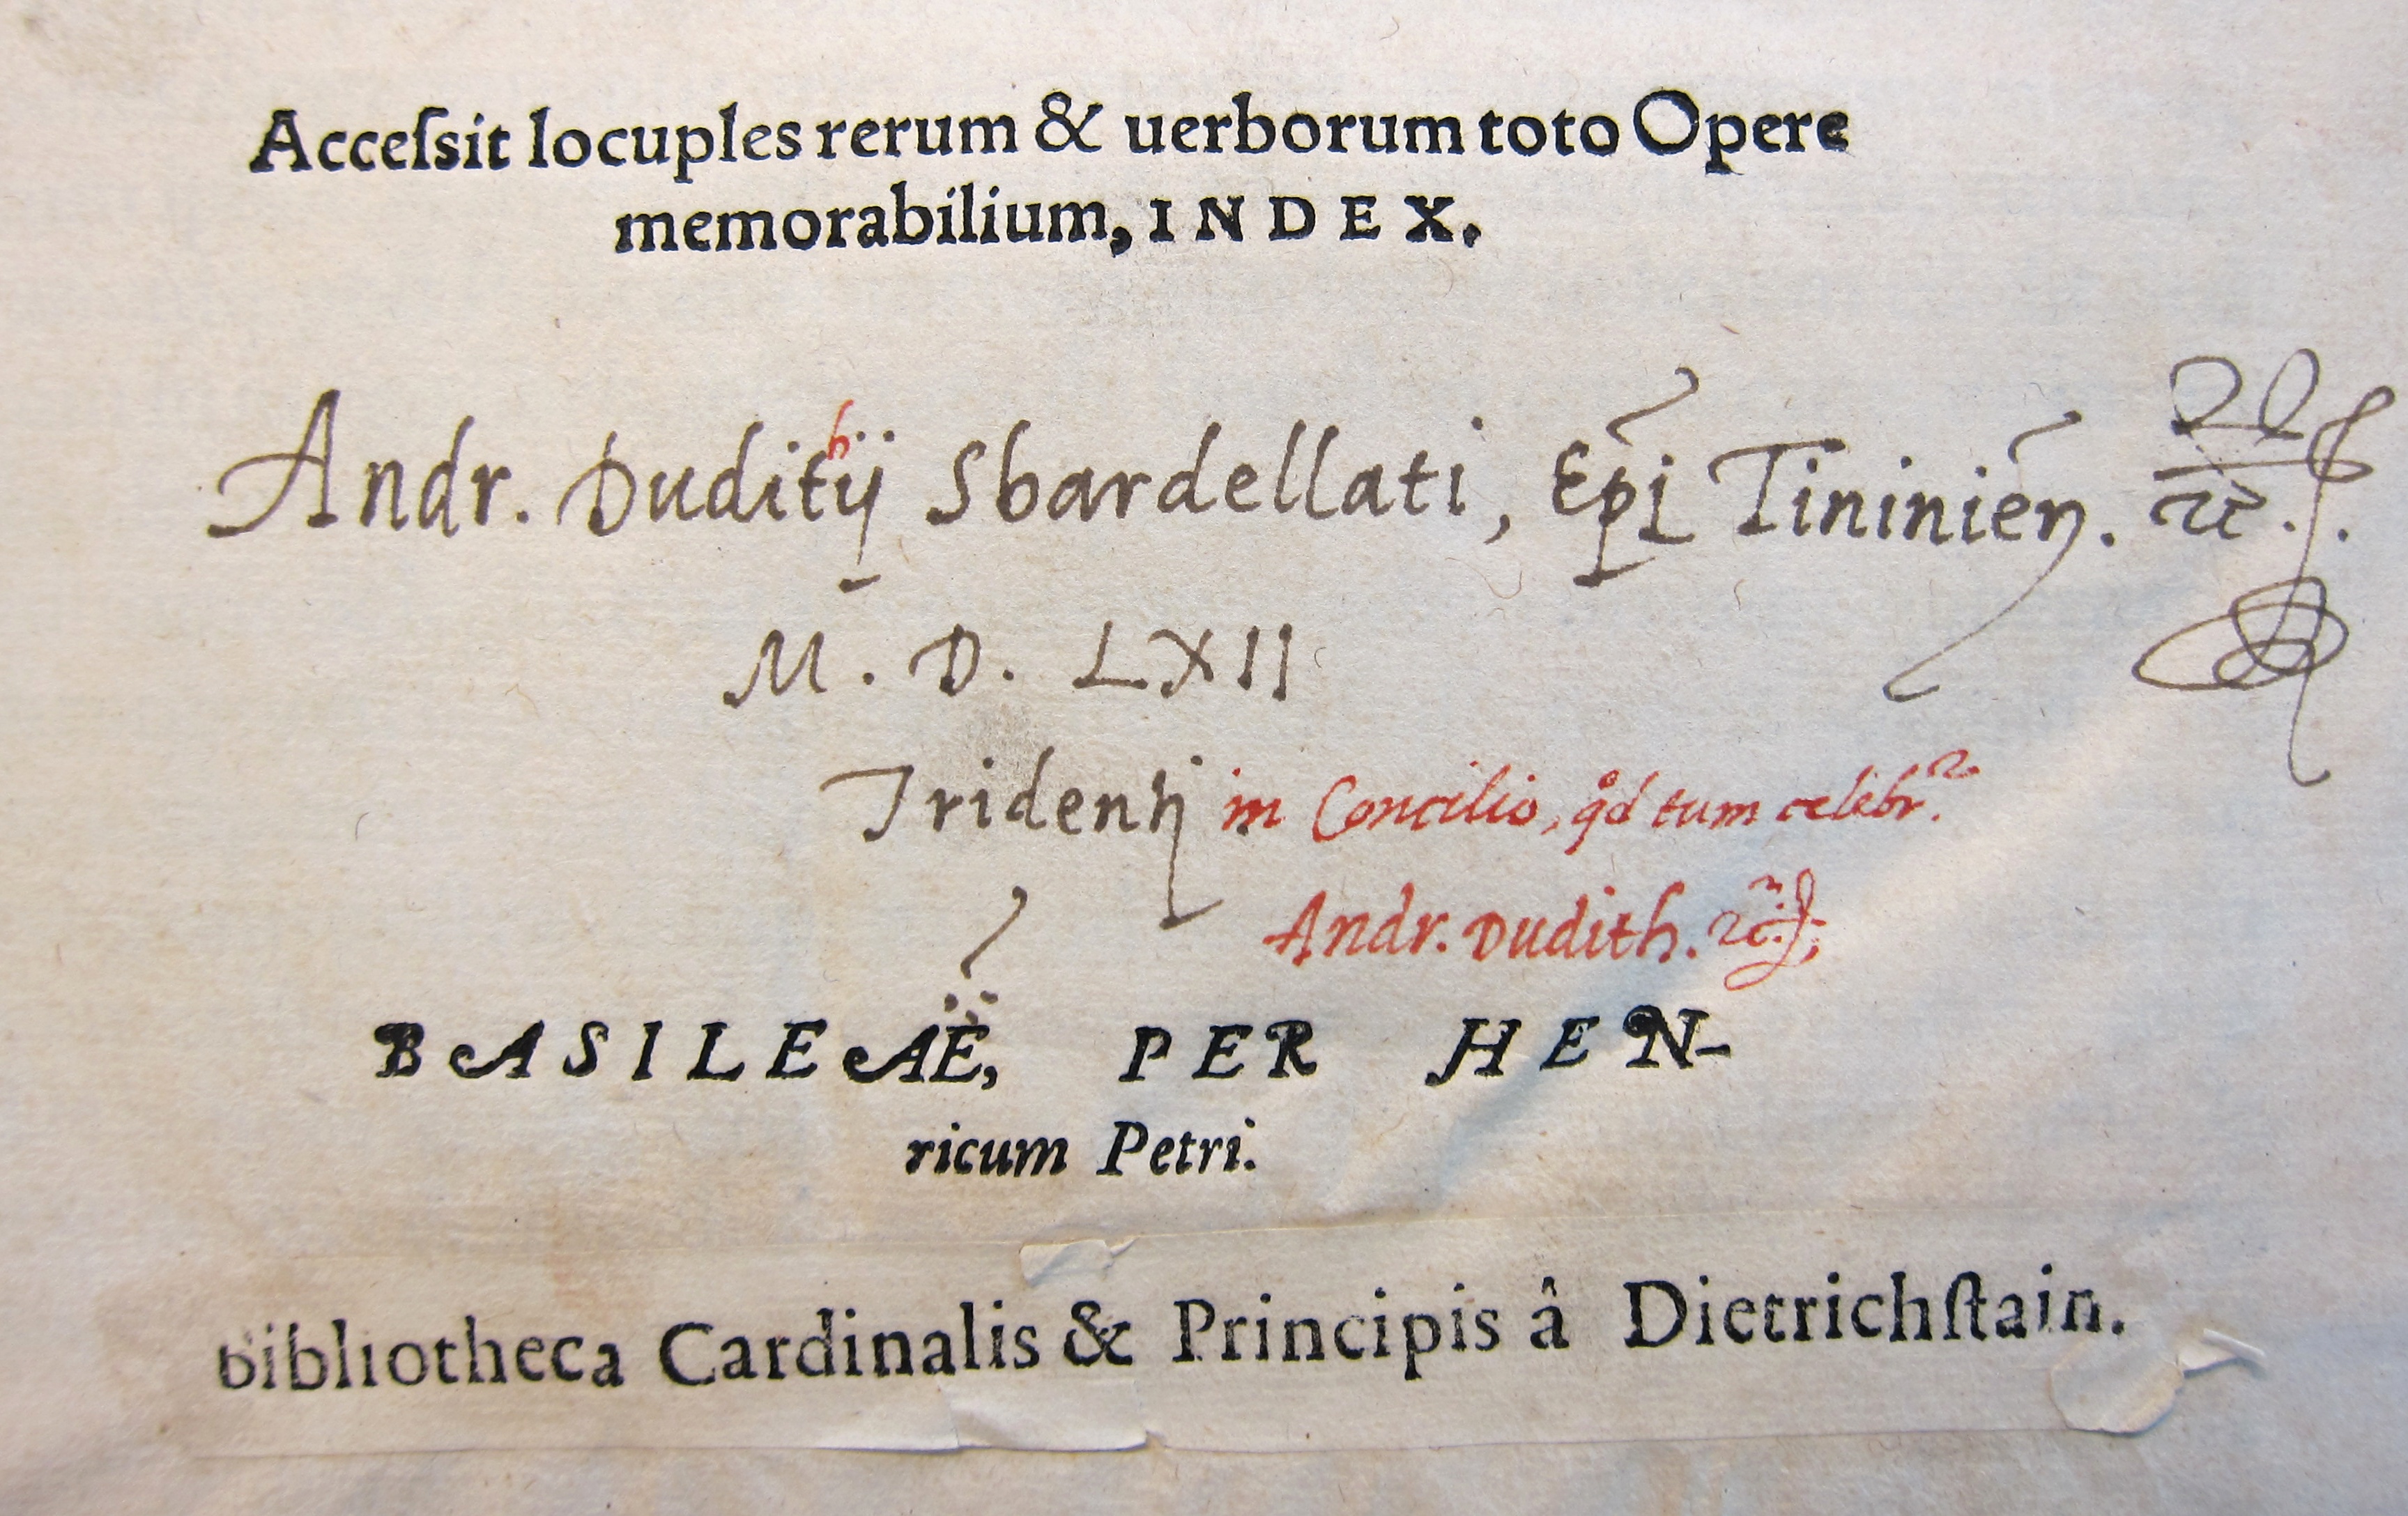 Acceſsit locuples rerum & uerborum toto Opere
memorabilium, INDEX.
Andr. Duditħij Sbardellati, Ep̃i Tininień. &c.
M. D. LXII
Tridentj in Concilio, qd tum celebr.
Andr. Dudith. &c.
BASILEAE, PER HEN-
ricum Petri.
Bibliotheca Cardinalis & Principis â Dietrichſtain.